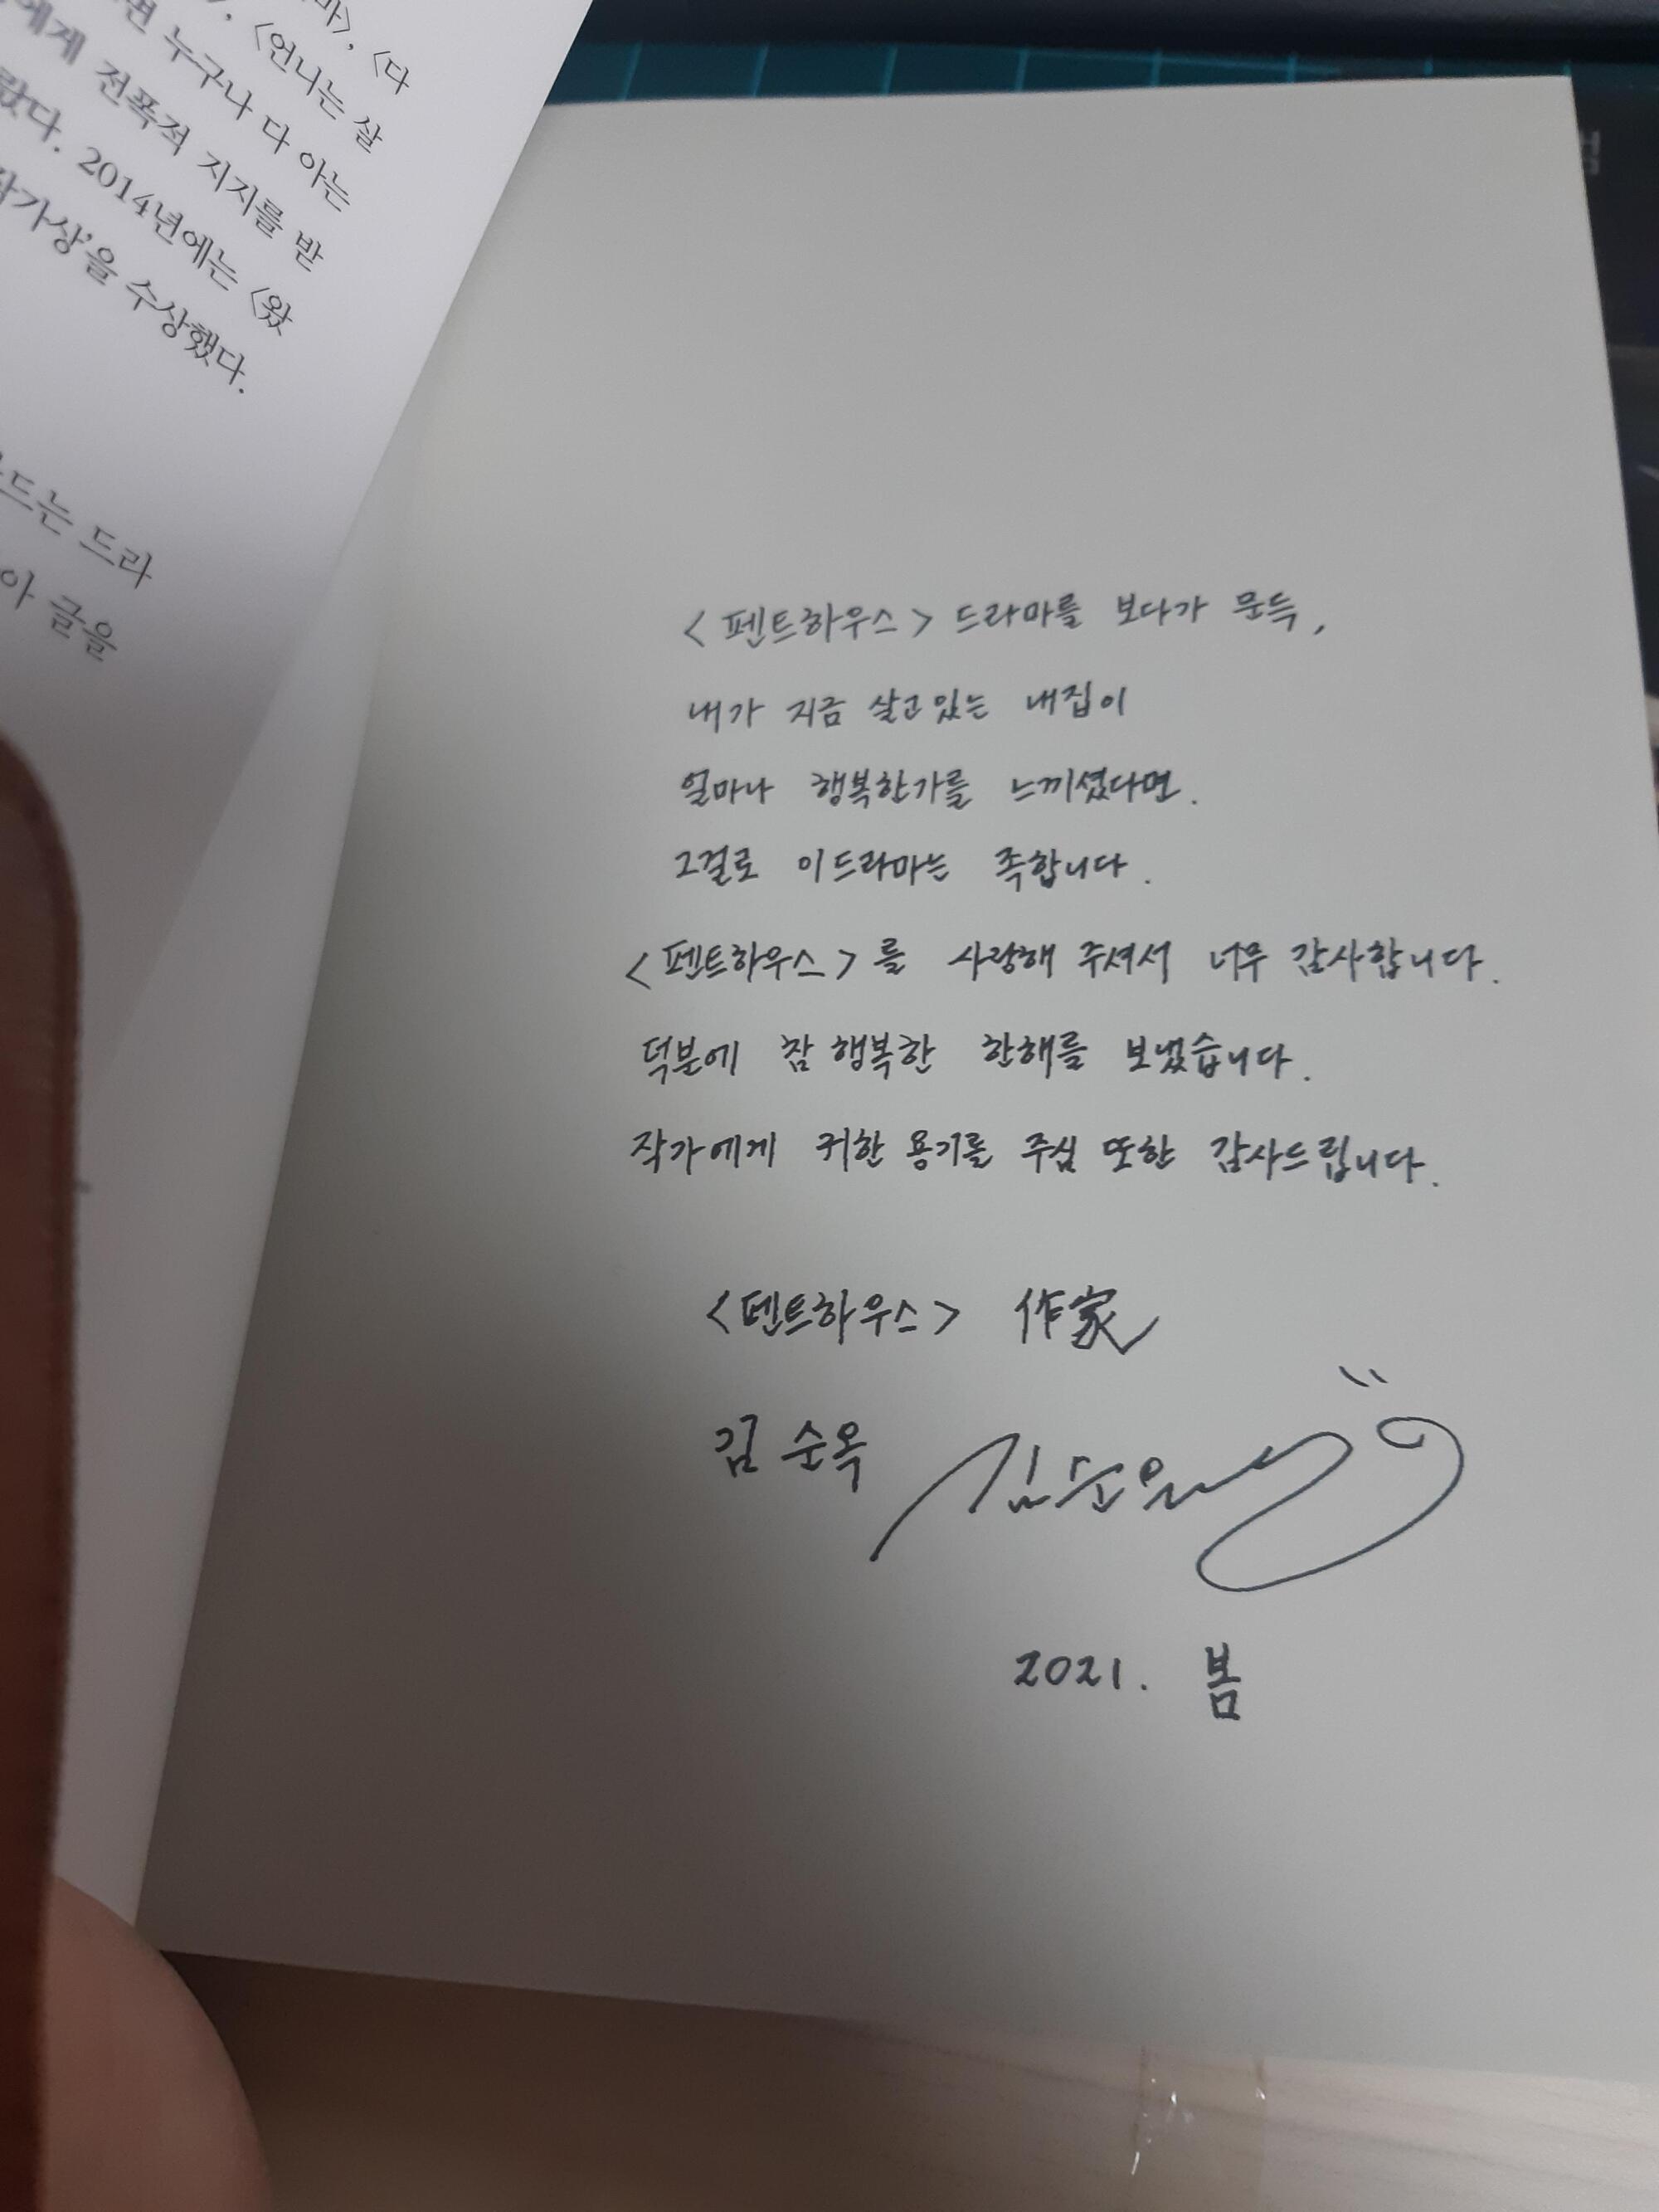 마>, <다
<언니는 살
면 누구나 다 아는
에게 전폭적 지지를 받
랐다. 2014년에는 <왔
작가상'을 수상했다.
드는 드라
아 글을
<펜트하우스> 드라마를 보다가 문득,
내가 지금 살고있는 내집이
얼마나 행복한가를 느끼셨다면.
그걸로 이드라마는 족합니다.
<펜트하우스>를 사랑해 주셔서 너무 감사합니다.
덕분에 참 행복한 한해를 보냈습니다.
작가에게 귀한 용기를 주심 또한 감사드립니다.
<펜트하우스> 作家
김순옥 김순옥
2021. 봄